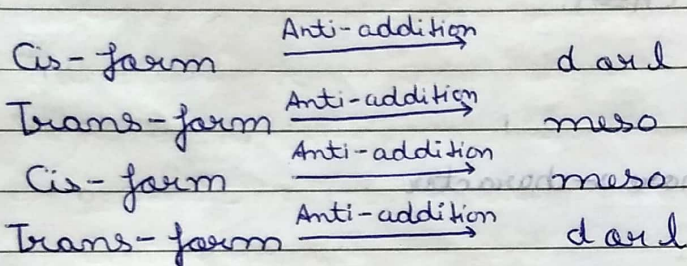 Cis-form Anti-addition d or l
Trans-form Anti-addition meso
Cis-form Anti-addition meso
Trans-form Anti-addition d or l